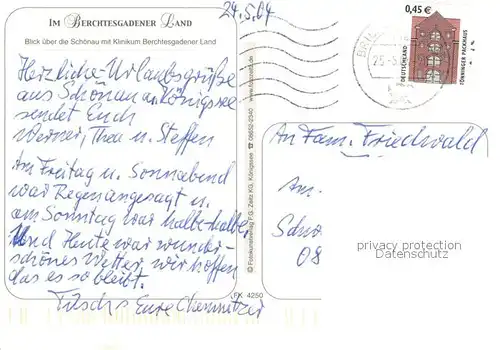 24.5.04
IM BERCHTESGADENER LAND
Blick über die Schönau mit Klinikum Berchtesgadener Land
Herzliche Urlaubsgrüße
aus Schönau a. Königssee
sendet Euch
Werner, Thea u. Steffen
Am Freitag u. Sonnabend
war Regen angesagt u.
am Sonntag war halbe-halbe.
Und Heute war wunder-
schönes Wetter, wir hoffen
das es so bleibt.
Tschüs Eure Chemnitzer
© Fotokunstverlag F.G. Zeitz KG, Königssee ☎ 08652-2340
FK 4250
0,45 €
DEUTSCHLAND
TÖNNINGER PACKHAUS
An Fam. Friedwald
Am.
Schö
08
privacy protection
Datenschutz